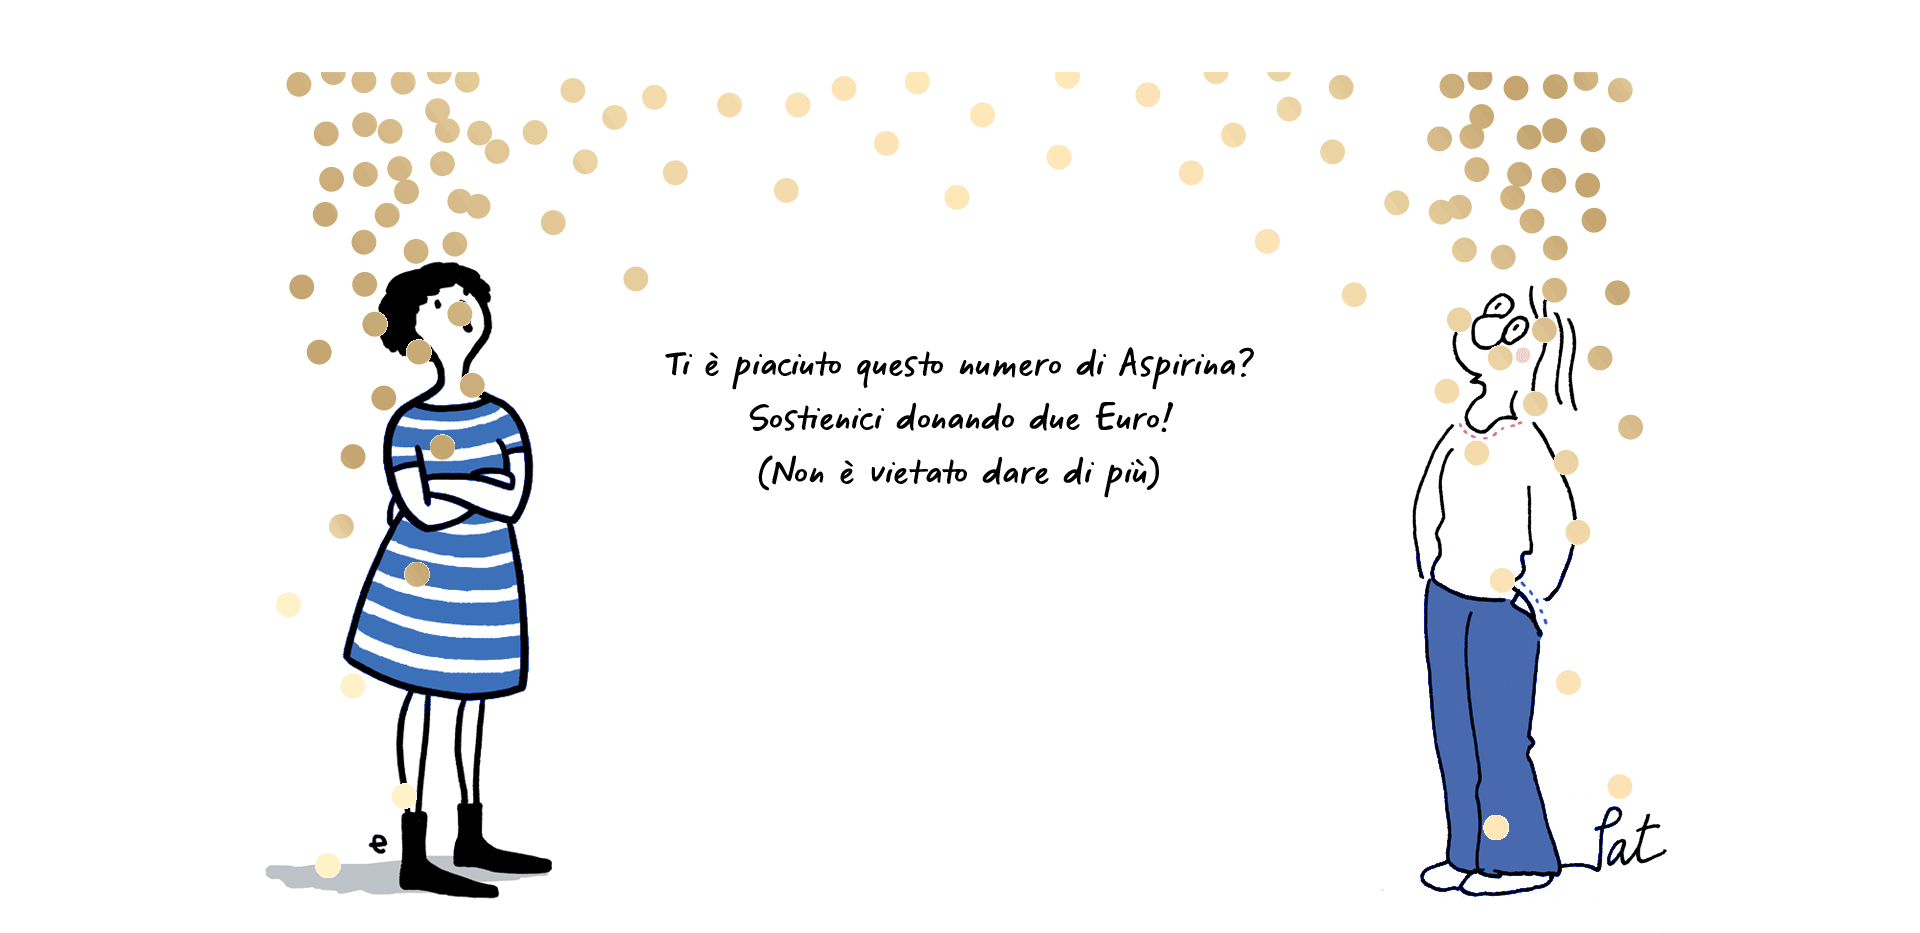 Ti è piaciuto questo numero di Aspirina?
Sostienici donando due Euro!
(Non è vietato dare di più)
e
Pat